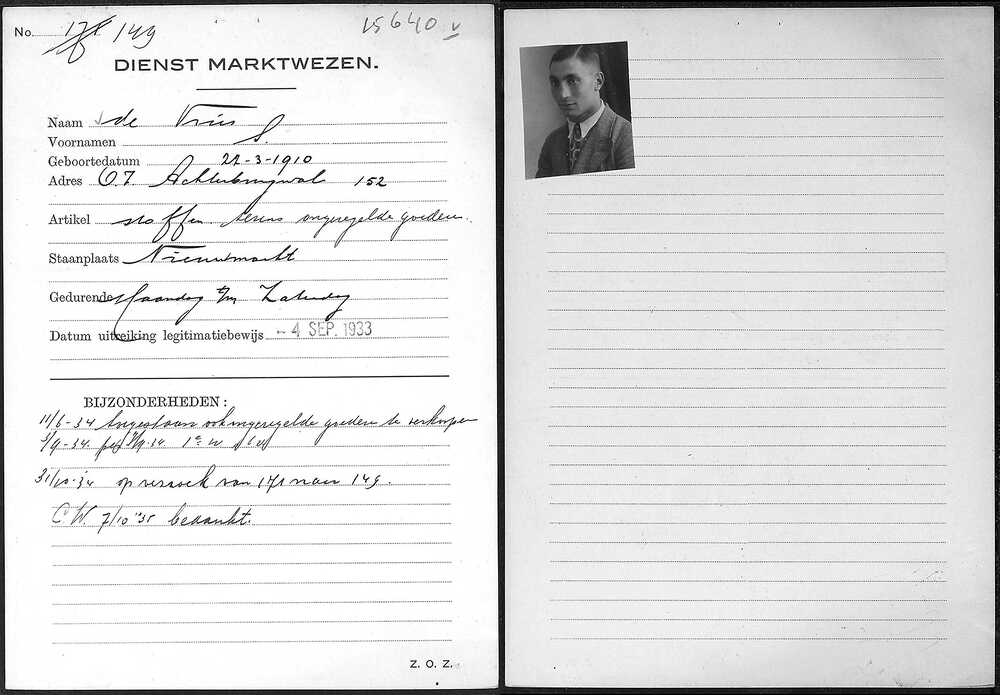 No. 171 149
15640 v
DIENST MARKTWEZEN.
Naam de Vries
Voornamen S.
Geboortedatum 22-3-1910
Adres O.Z. Achterburgwal 152
Artikel stoffen tevens ongeregelde goederen.
Staanplaats Nieuwmarkt
Gedurende Maandag t/m Zaterdag
Datum uitreiking legitimatiebewijs - 4 SEP. 1933
BIJZONDERHEDEN:
11/6-34 toegestaan ook ongeregelde goederen te verkoopen
/9-34. 1e
31/10-'34 op verzoek van 171 naar 149.
C.W. 7/10 '35 bedankt.
Z. O. Z.